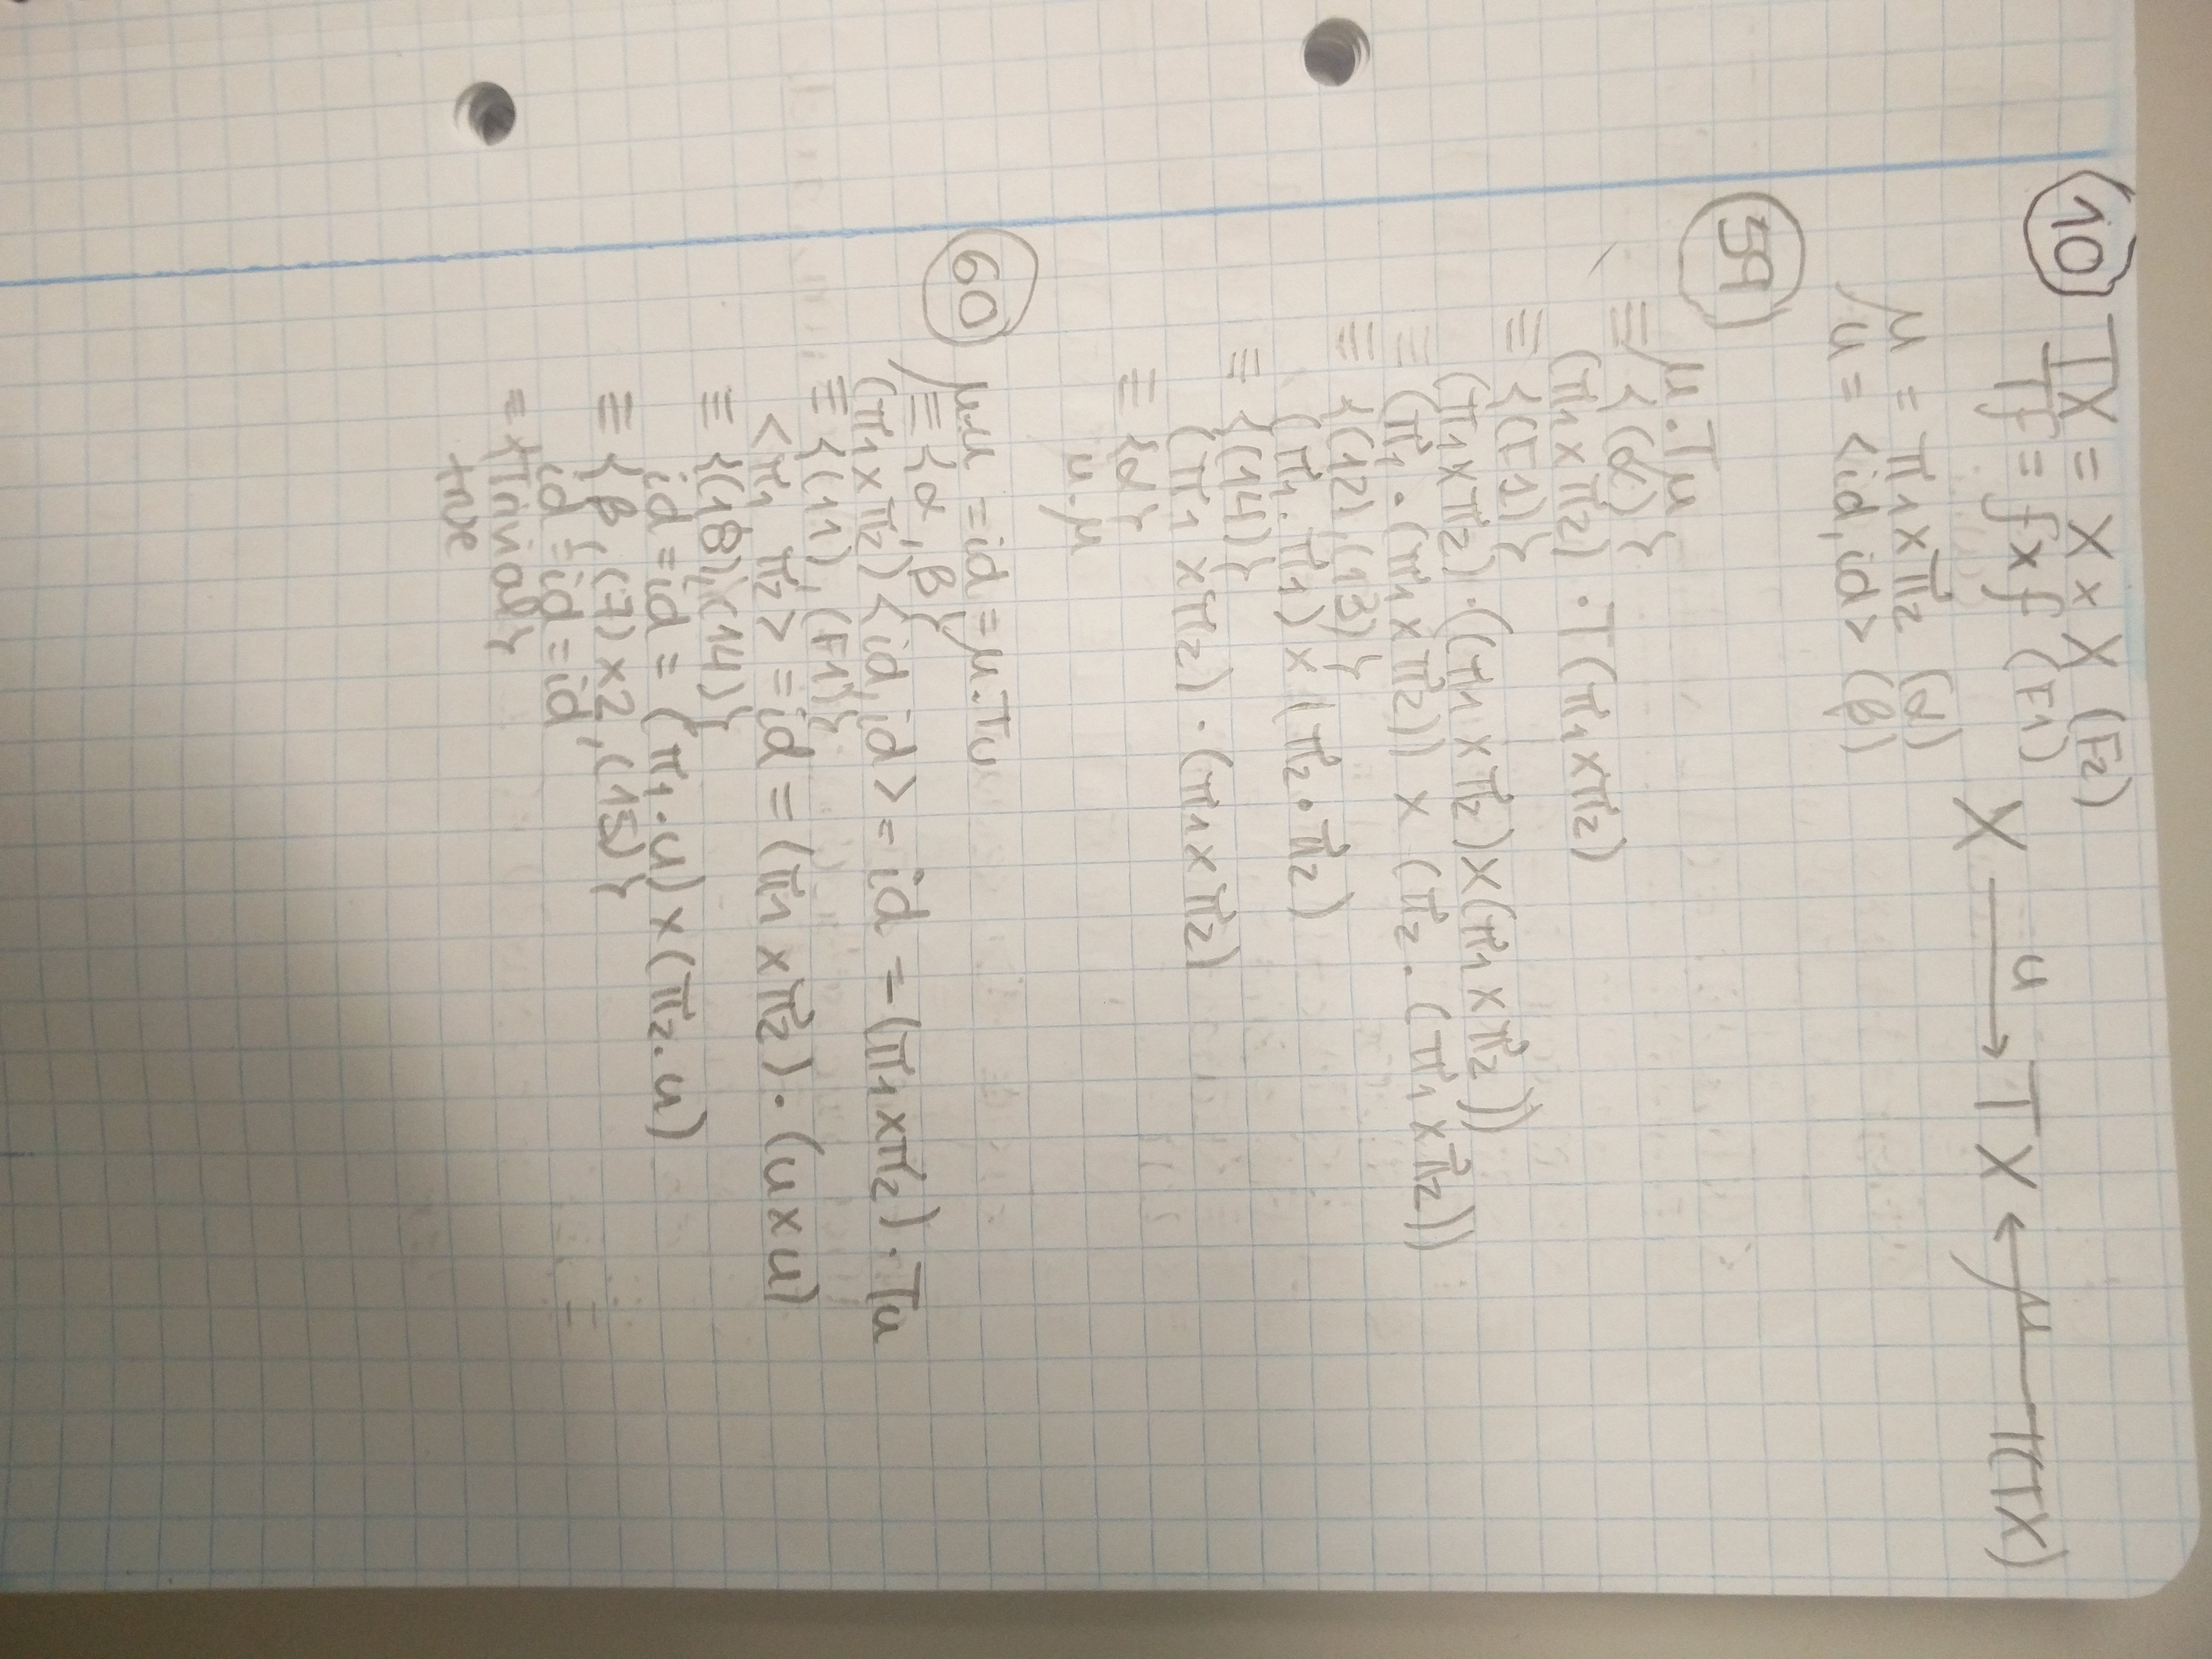 10 TX = X × X (F2)
Tf = f×f (F1)
X u→ TX ←μ T(TX)
μ = π1×π2 (α)
u = <id, id> (β)
59
μ.Tμ
≡ {(α)}
(π1×π2) · T(π1×π2)
≡ {(F1)}
(π1×π2) · ((π1×π2)×(π1×π2))
≡ (π1 · (π1×π2)) × (π2 . (π1×π2))
≡ {(12), (13)}
(π1 . π1) × (π2 · π2)
≡ {(14)}
(π1×π2) · (π1×π2)
≡ {α}
μ.μ
60 μ.u = id = μ.Tu
≡ {α, β}
(π1×π2) <id, id> = id = (π1×π2) · Tu
≡ {(11), (F1)}
<π1, π2> = id = (π1×π2) · (u×u)
≡ {(18), (14)}
id = id = (π1.u)×(π2.u)
≡ {β, (7)×2, (15)}
id = id = id
≡ {Trivial}
true